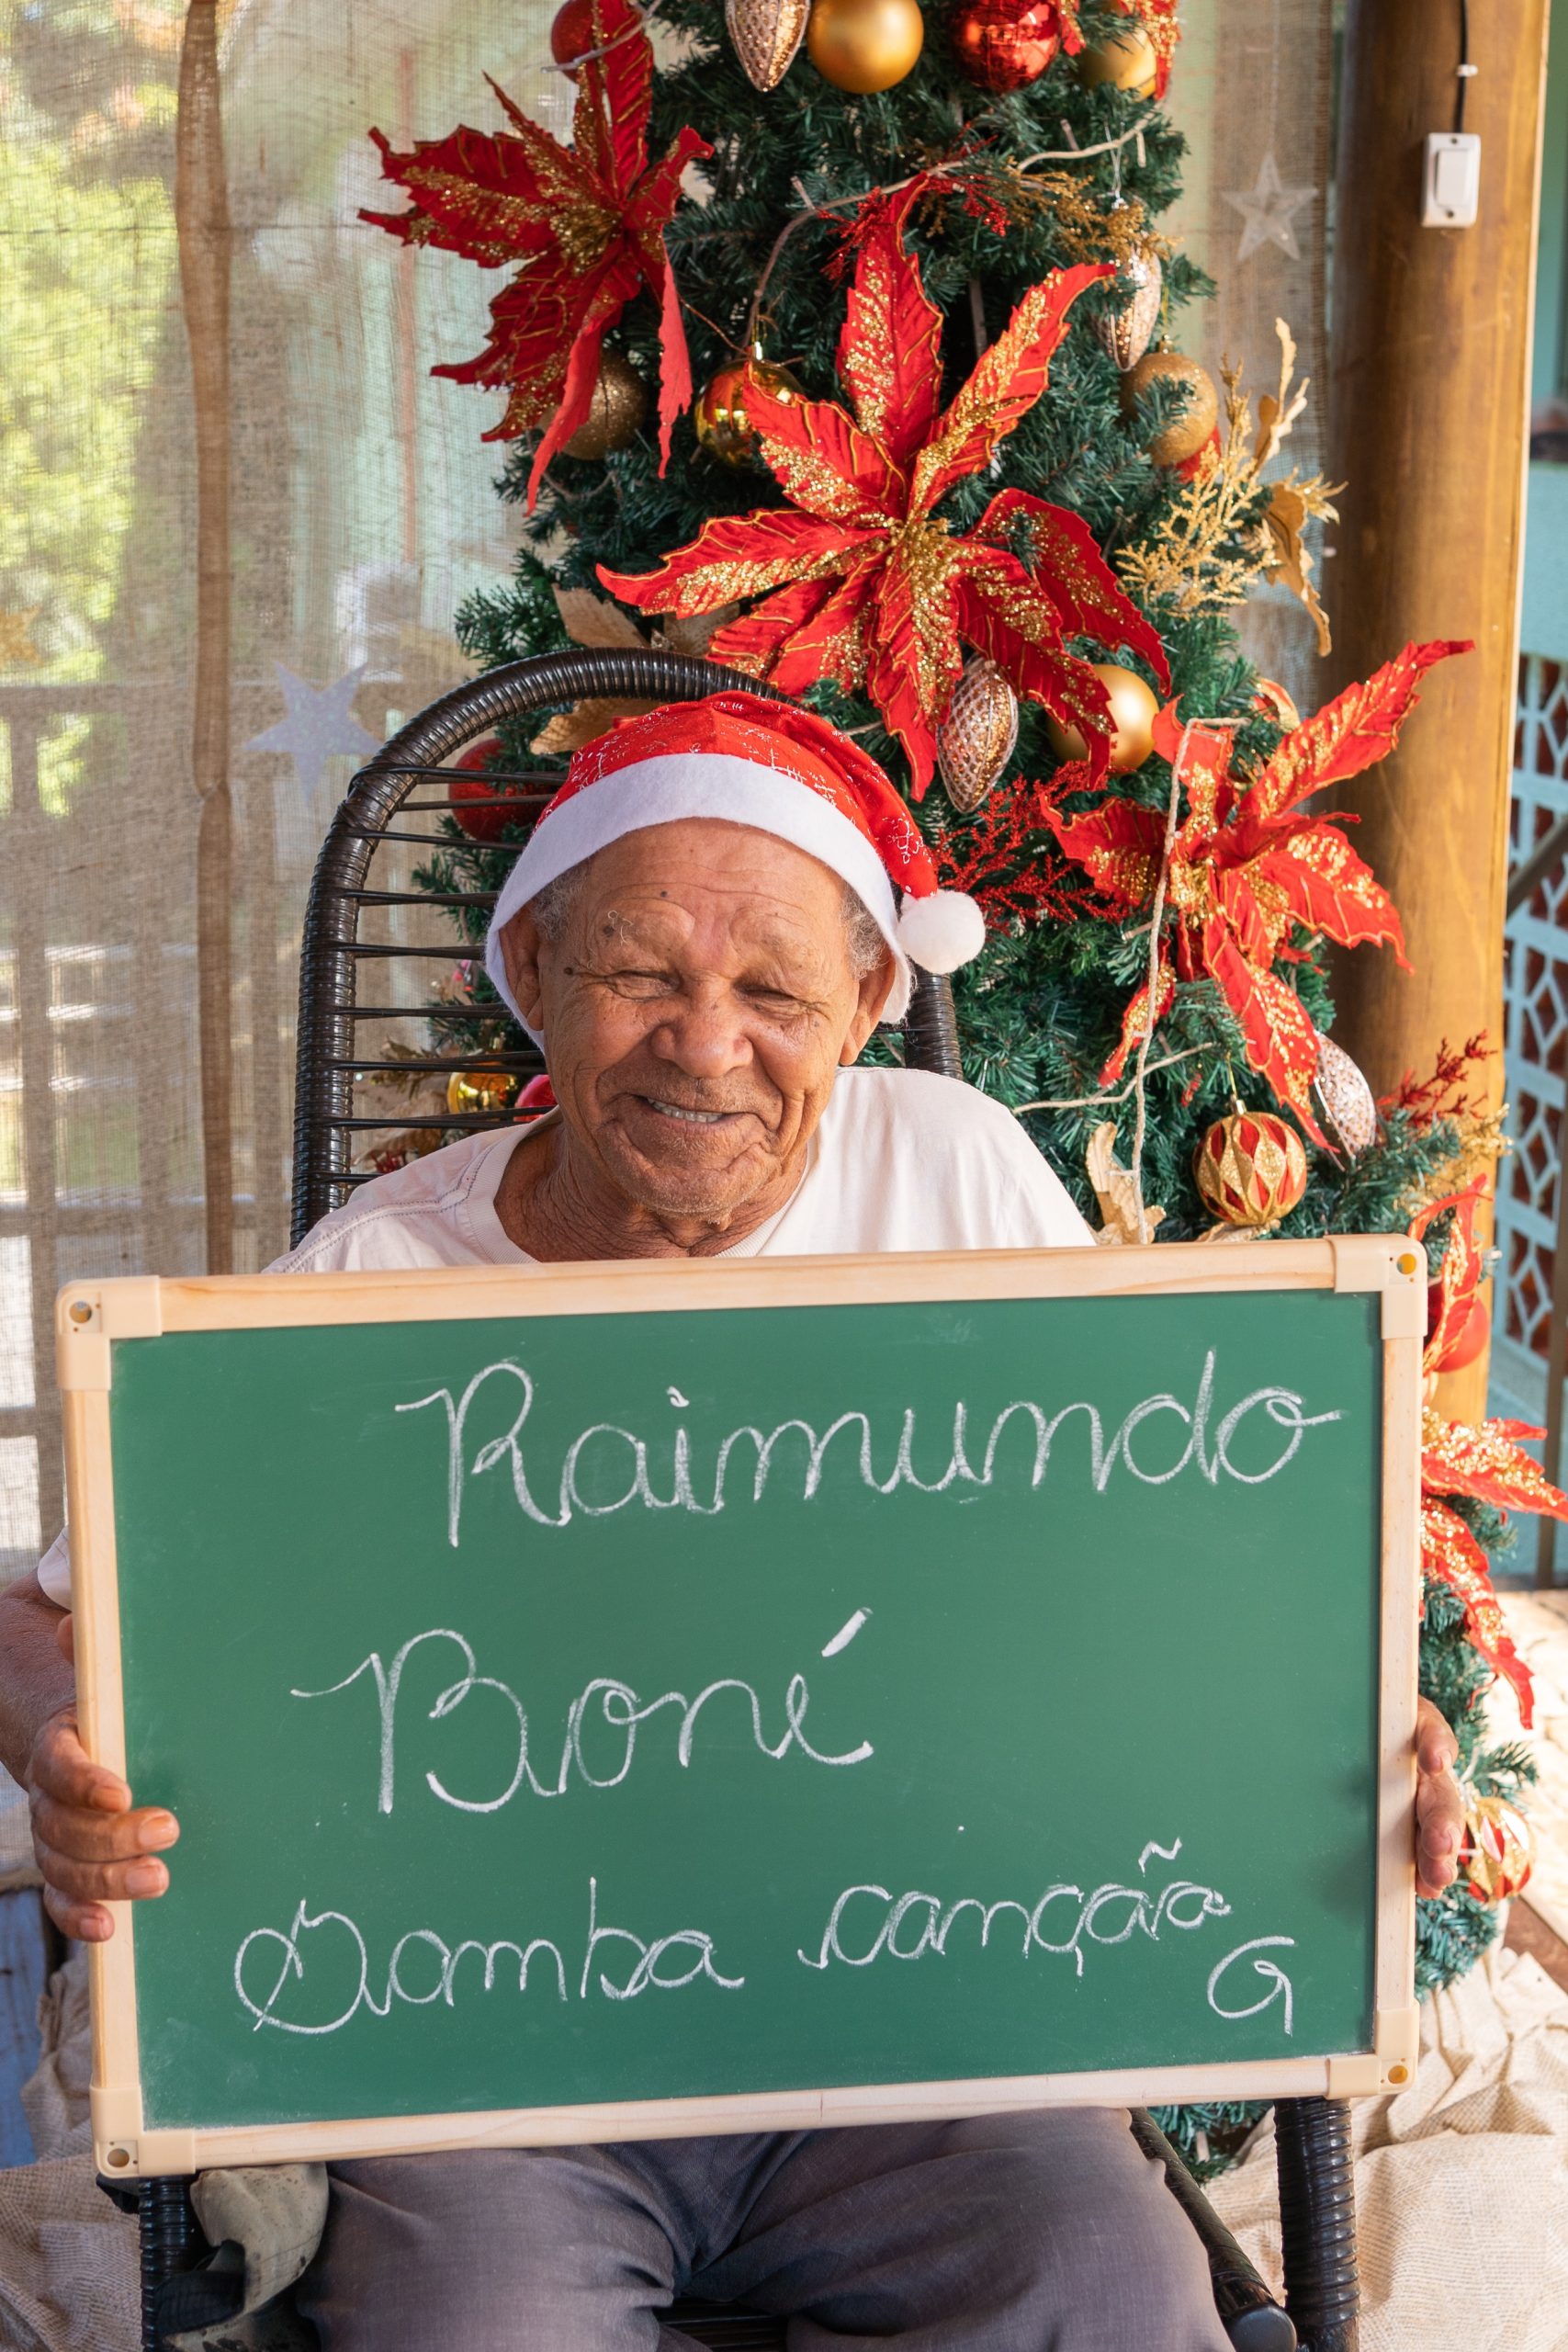 Raimundo
Boné
Samba canção
G